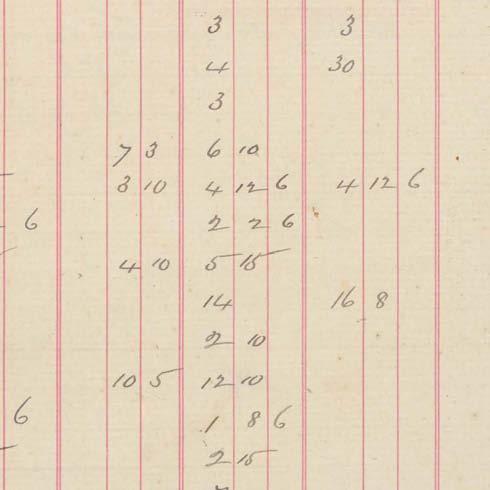 3 3
4 30
3
7 3 6 10
3 10 4 12 6 4 12 6
6 2 2 6
4 10 5 15
14 16 8
2 10
10 5 12 10
6 1 8 6
2 15